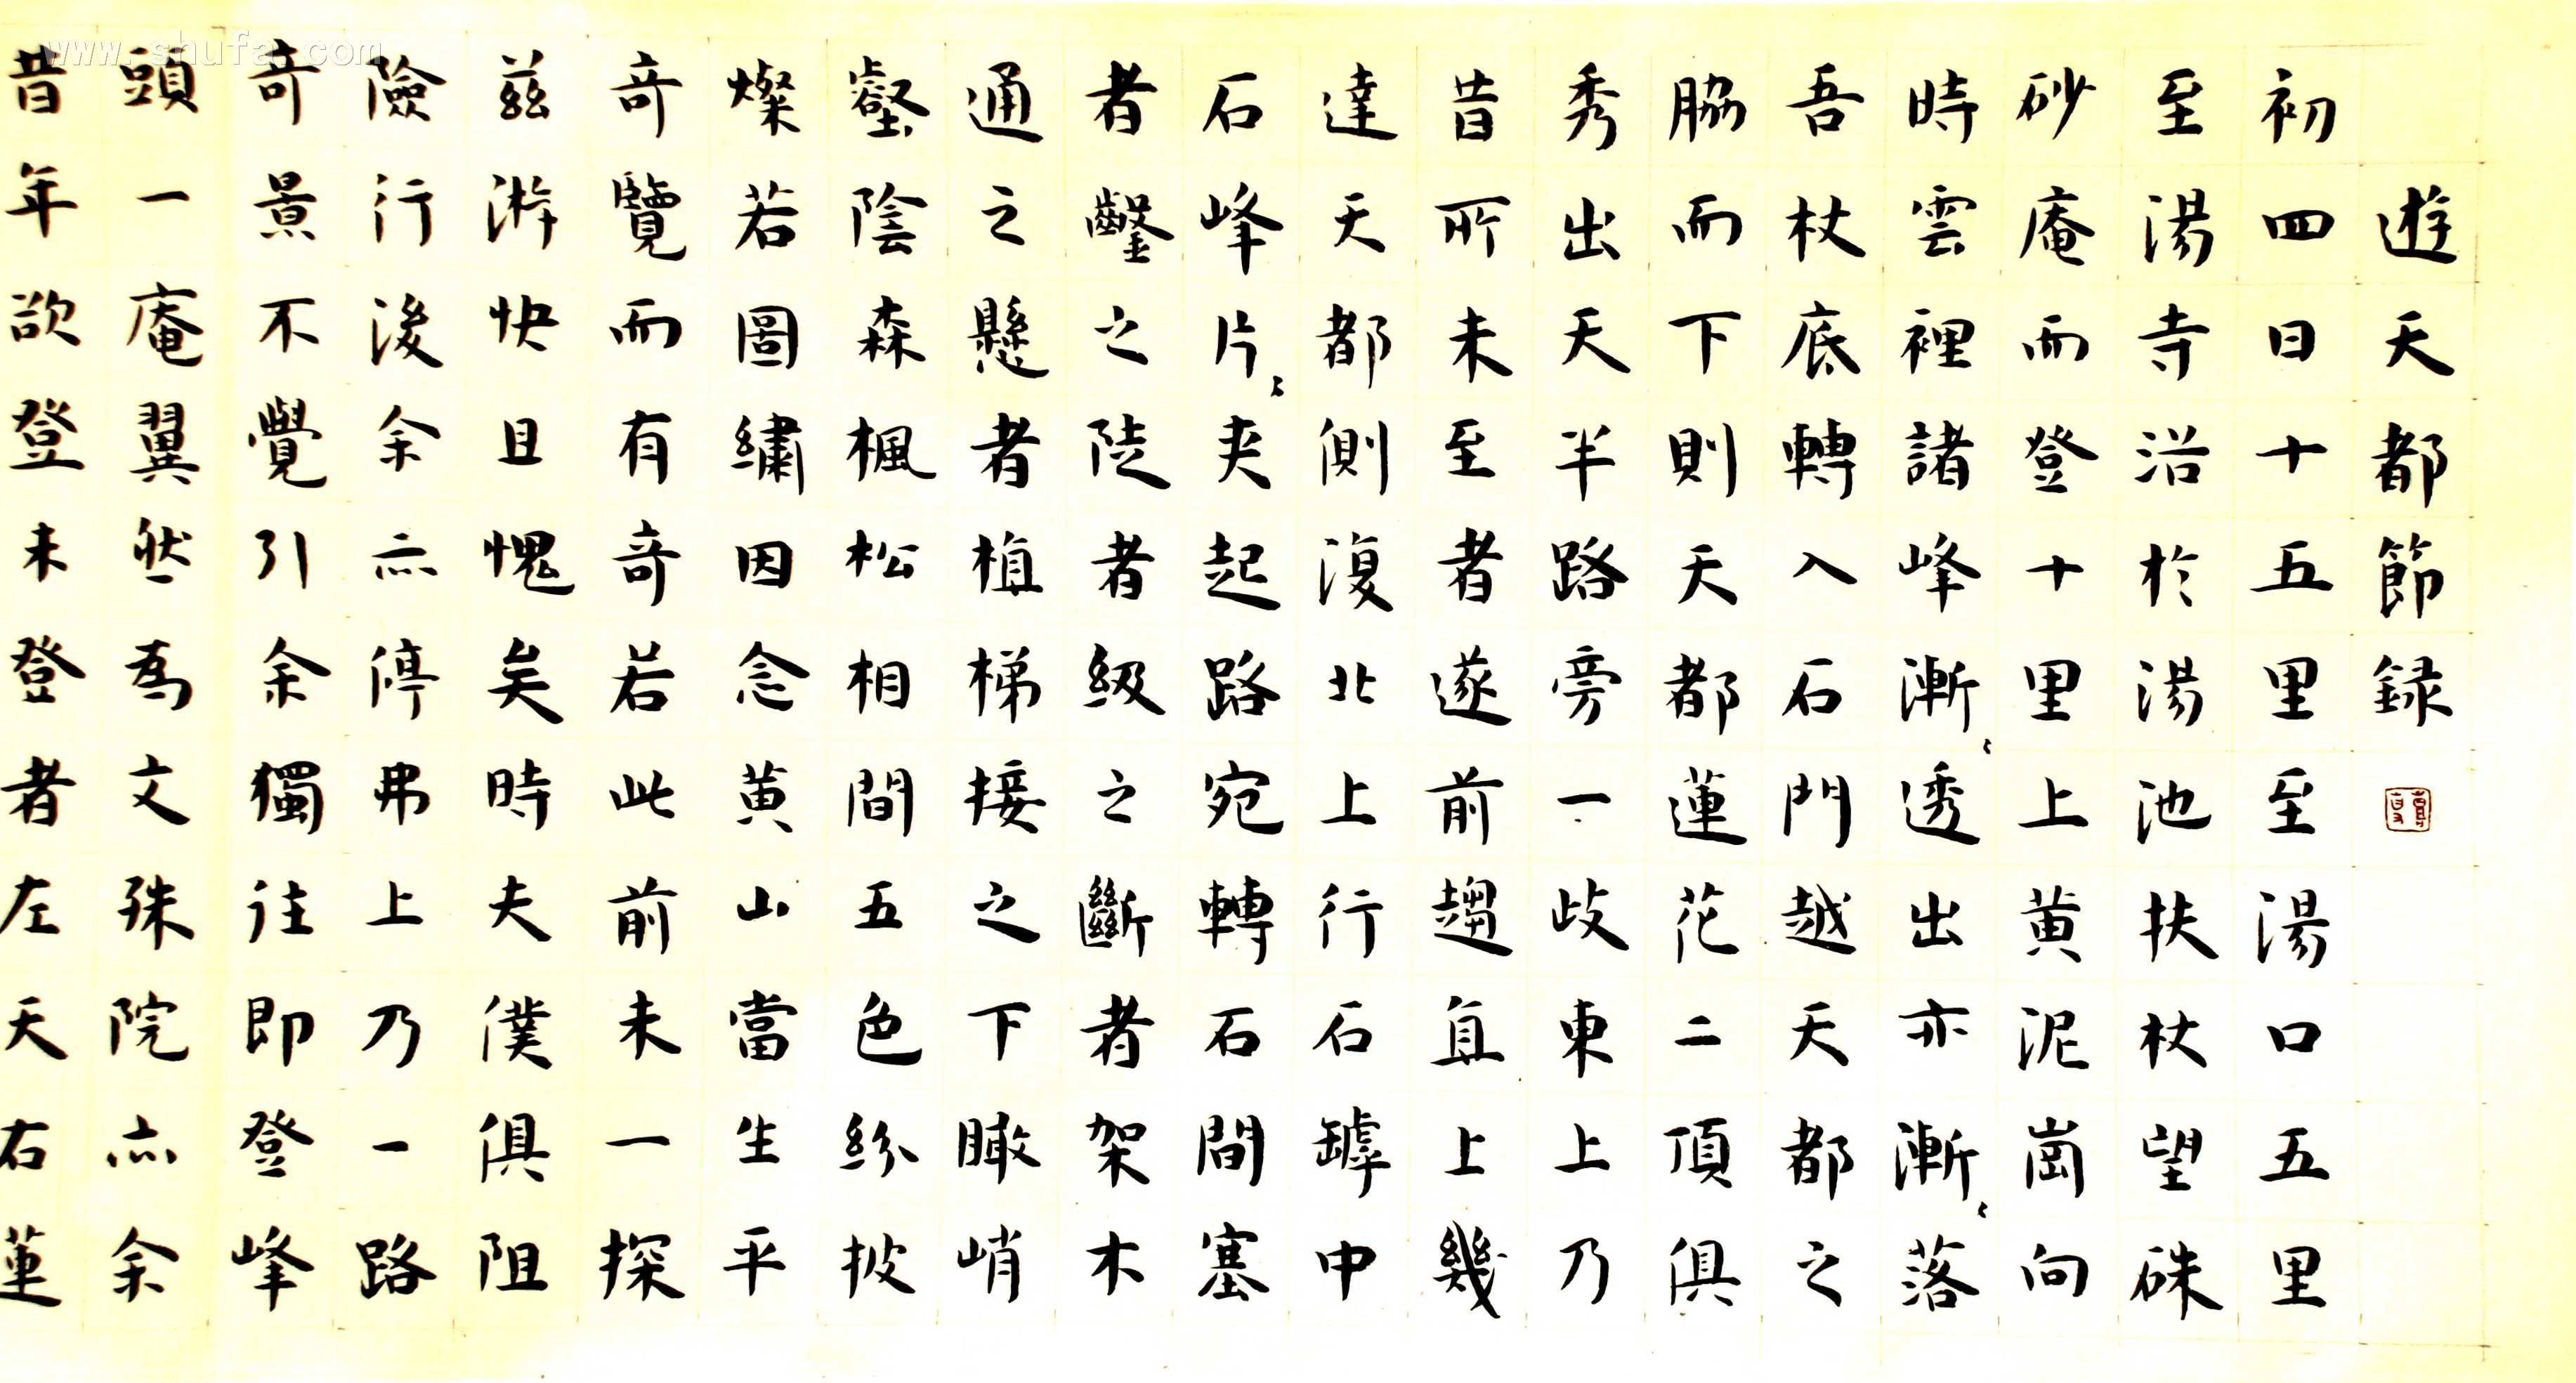 遊天都節録
初四日十五里至湯口五里
至湯寺浴於湯池扶杖望硃
砂庵而登十里上黄泥崗向
時雲裡諸峰漸〻透出亦漸〻落
吾杖底轉入石門越天都之
脇而下則天都蓮花二頂俱
秀出天半路旁一歧東上乃
昔所未至者遂前趨直上幾
達天都側復北上行石罅中
石峰片〻夾起路宛轉石間塞
者鑿之陡者級之斷者架木
通之懸者植梯接之下瞰峭
壑陰森楓松相間五色紛披
燦若圖繡因念黄山當生平
奇覽而有奇若此前未一探
茲游快且愧矣時夫僕俱阻
險行後余亦停弗上乃一路
奇景不覺引余獨往即登峰
頭一庵翼然為文殊院亦余
昔年欲登未登者左天右蓮
www.shufa.com